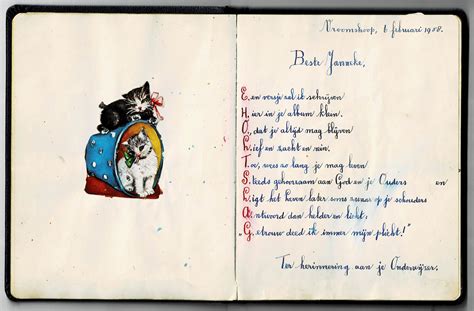 Vroomshoop, 6 februari
Beste Janneke,
Een versje zal ik schrijven
Hier in je album klein.
O, dat je altijd mag blijven
Lief en zacht en rein.
Toe, wees zo lang je mag leven
Steeds gehoorzaam aan God en je Ouders en
Ligt het leven later soms zwaar op je schouders
Antwoord dan helder en licht,
"Getrouw deed ik immer mijn plicht!"
Ter herinnering aan je Onderwijzer.